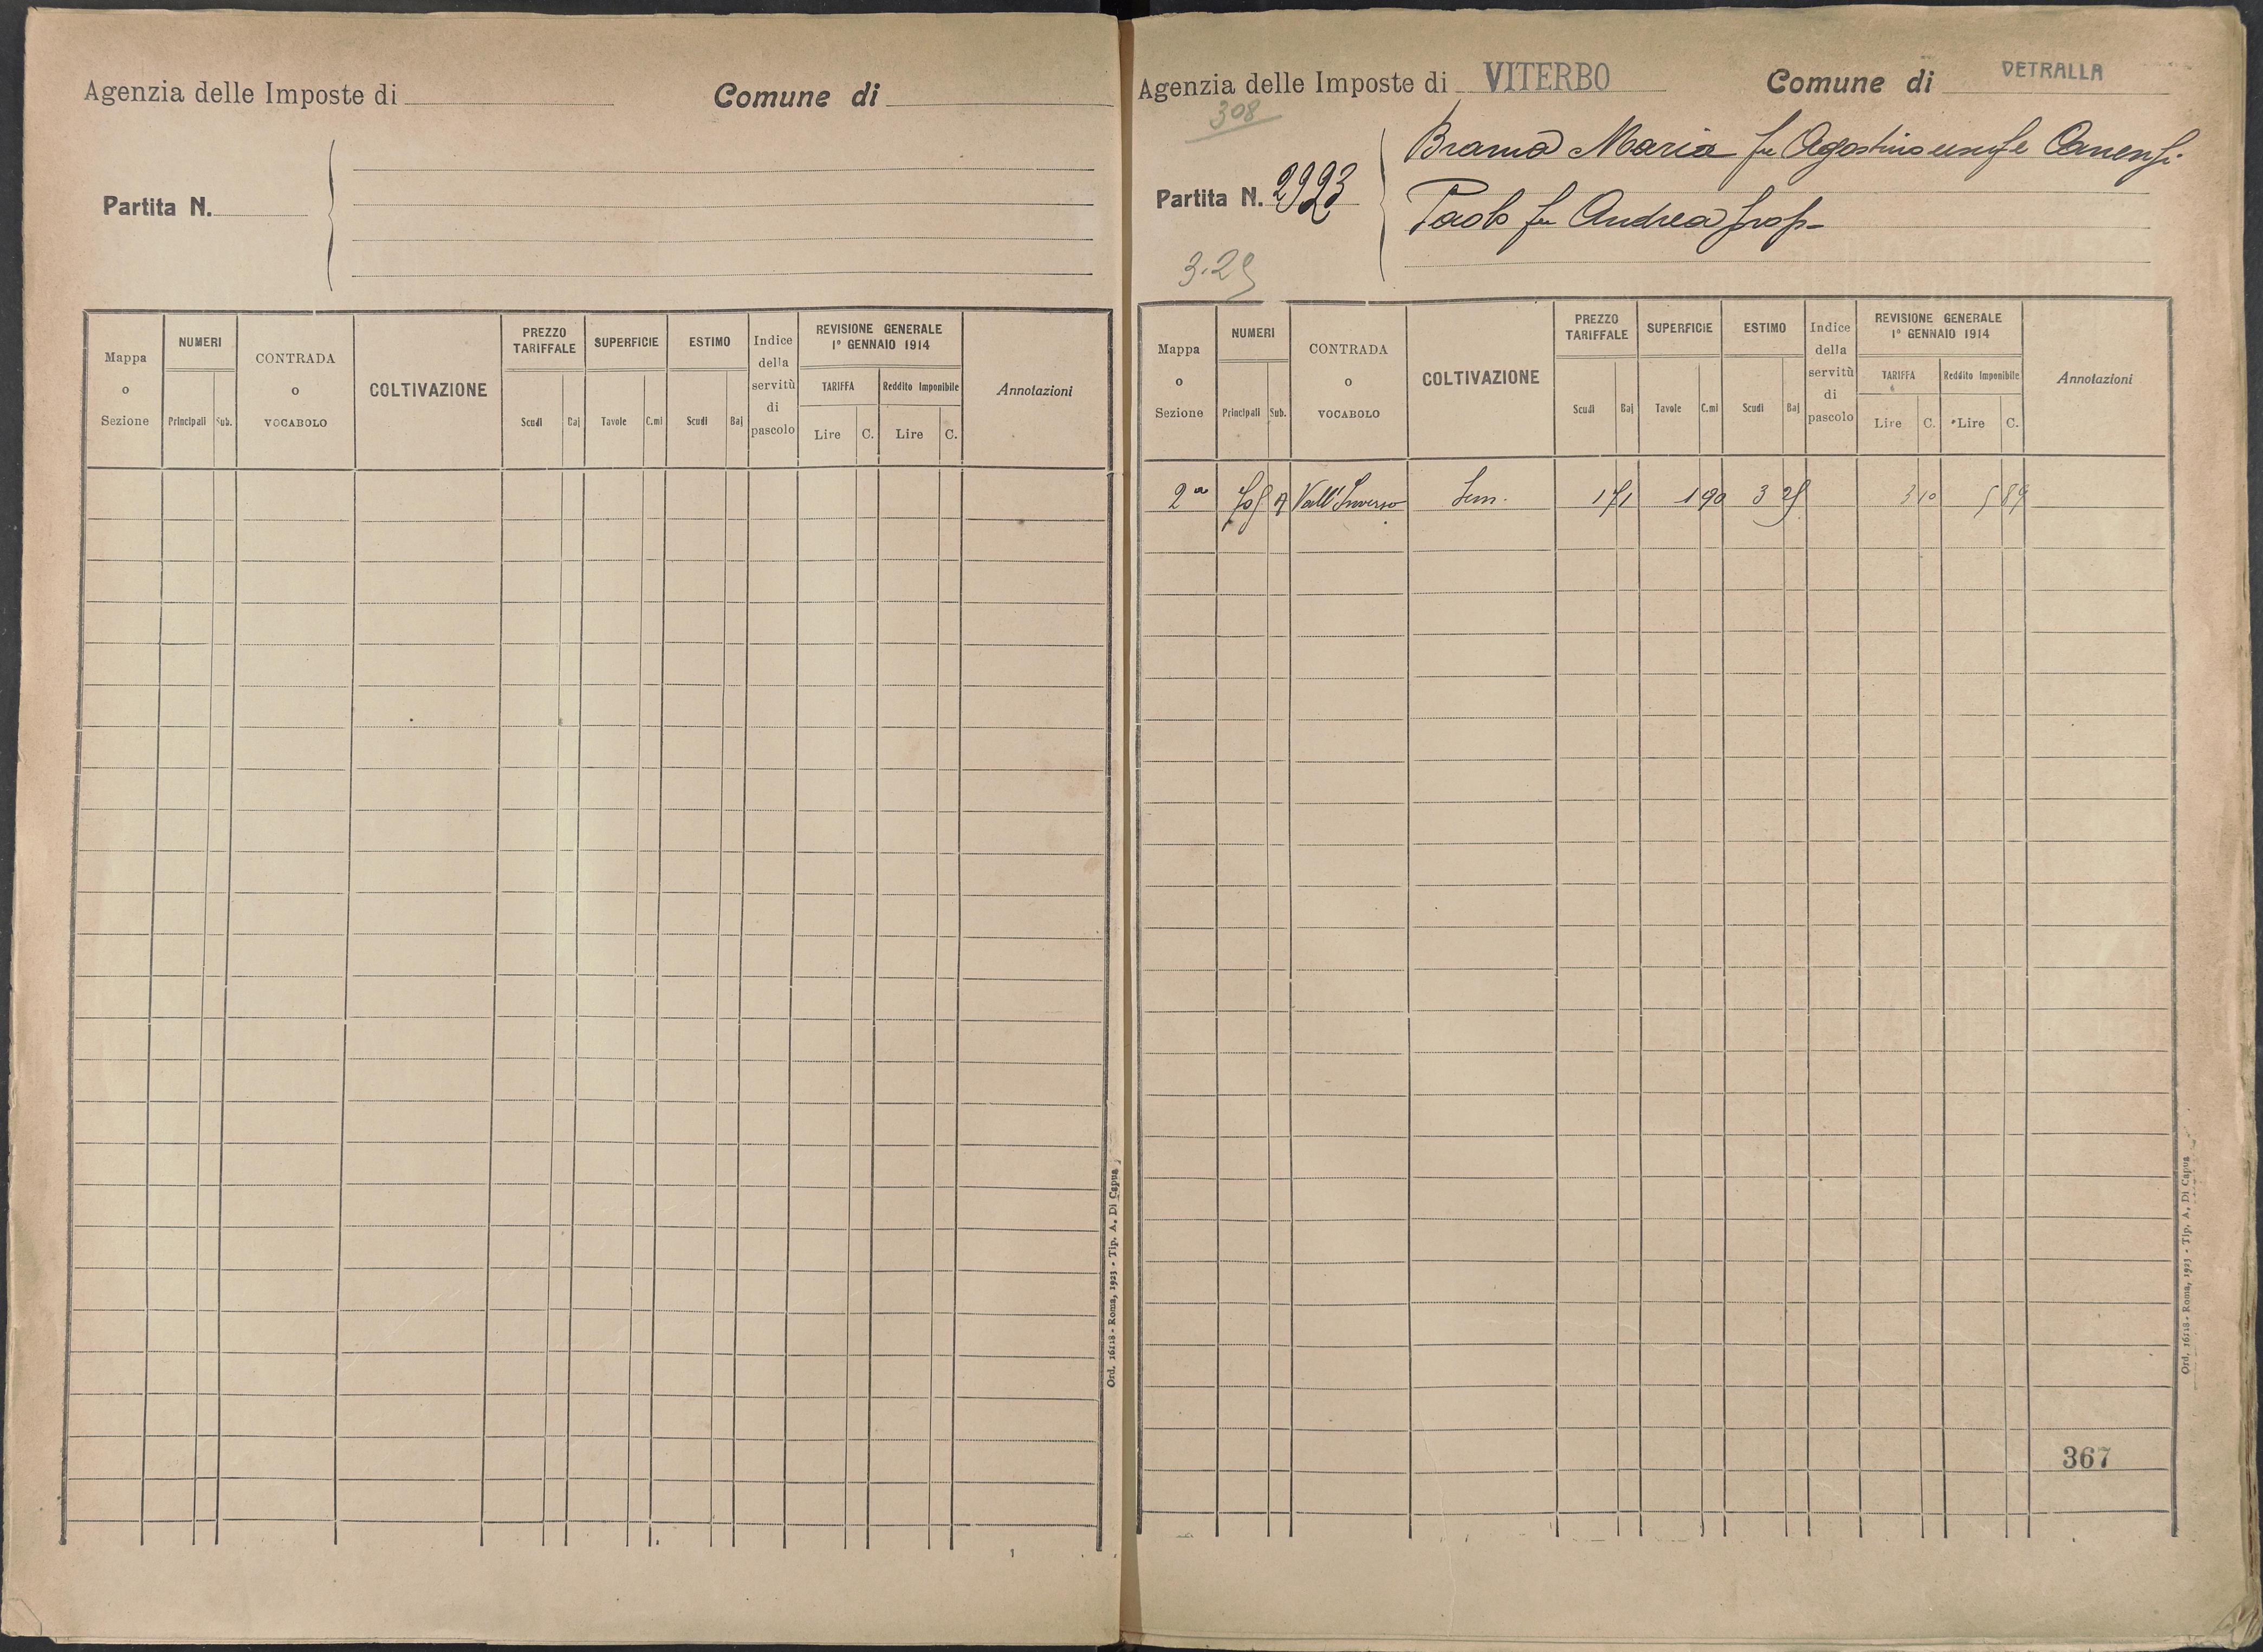 Agenzia delle Imposte di
Comune di
Partita N.
Mappa o Sezione
NUMERI
Principali
Sub.
CONTRADA o VOCABOLO
COLTIVAZIONE
PREZZO TARIFFALE
Scudi
Baj
SUPERFICIE
Tavole
C.mi
ESTIMO
Scudi
Baj
Indice della servitù di pascolo
REVISIONE GENERALE
1° GENNAIO 1914
TARIFFA
Reddito Imponibile
Lire
C.
Lire
C.
Annotazioni
Ord. 16118 - Roma, 1923 - Tip. A. Di Capua
1
Agenzia delle Imposte di VITERBO
Comune di VETRALLA
308
Partita N. 2993
Brama Maria fu Agostino usuf e Canensi
Paolo fu Andrea prop-
3.29
Mappa o Sezione
NUMERI
Principali
Sub.
CONTRADA o VOCABOLO
COLTIVAZIONE
PREZZO TARIFFALE
Scudi
Baj
SUPERFICIE
Tavole
C.mi
ESTIMO
Scudi
Baj
Indice della servitù di pascolo
REVISIONE GENERALE
1° GENNAIO 1914
TARIFFA
Reddito Imponibile
Lire
C.
Lire
C.
Annotazioni
2a Vall'Inverno Sem. 1 71 1 90 3 25 3 10 5 89
367
Ord. 16118 - Roma, 1923 - Tip. A. Di Capua